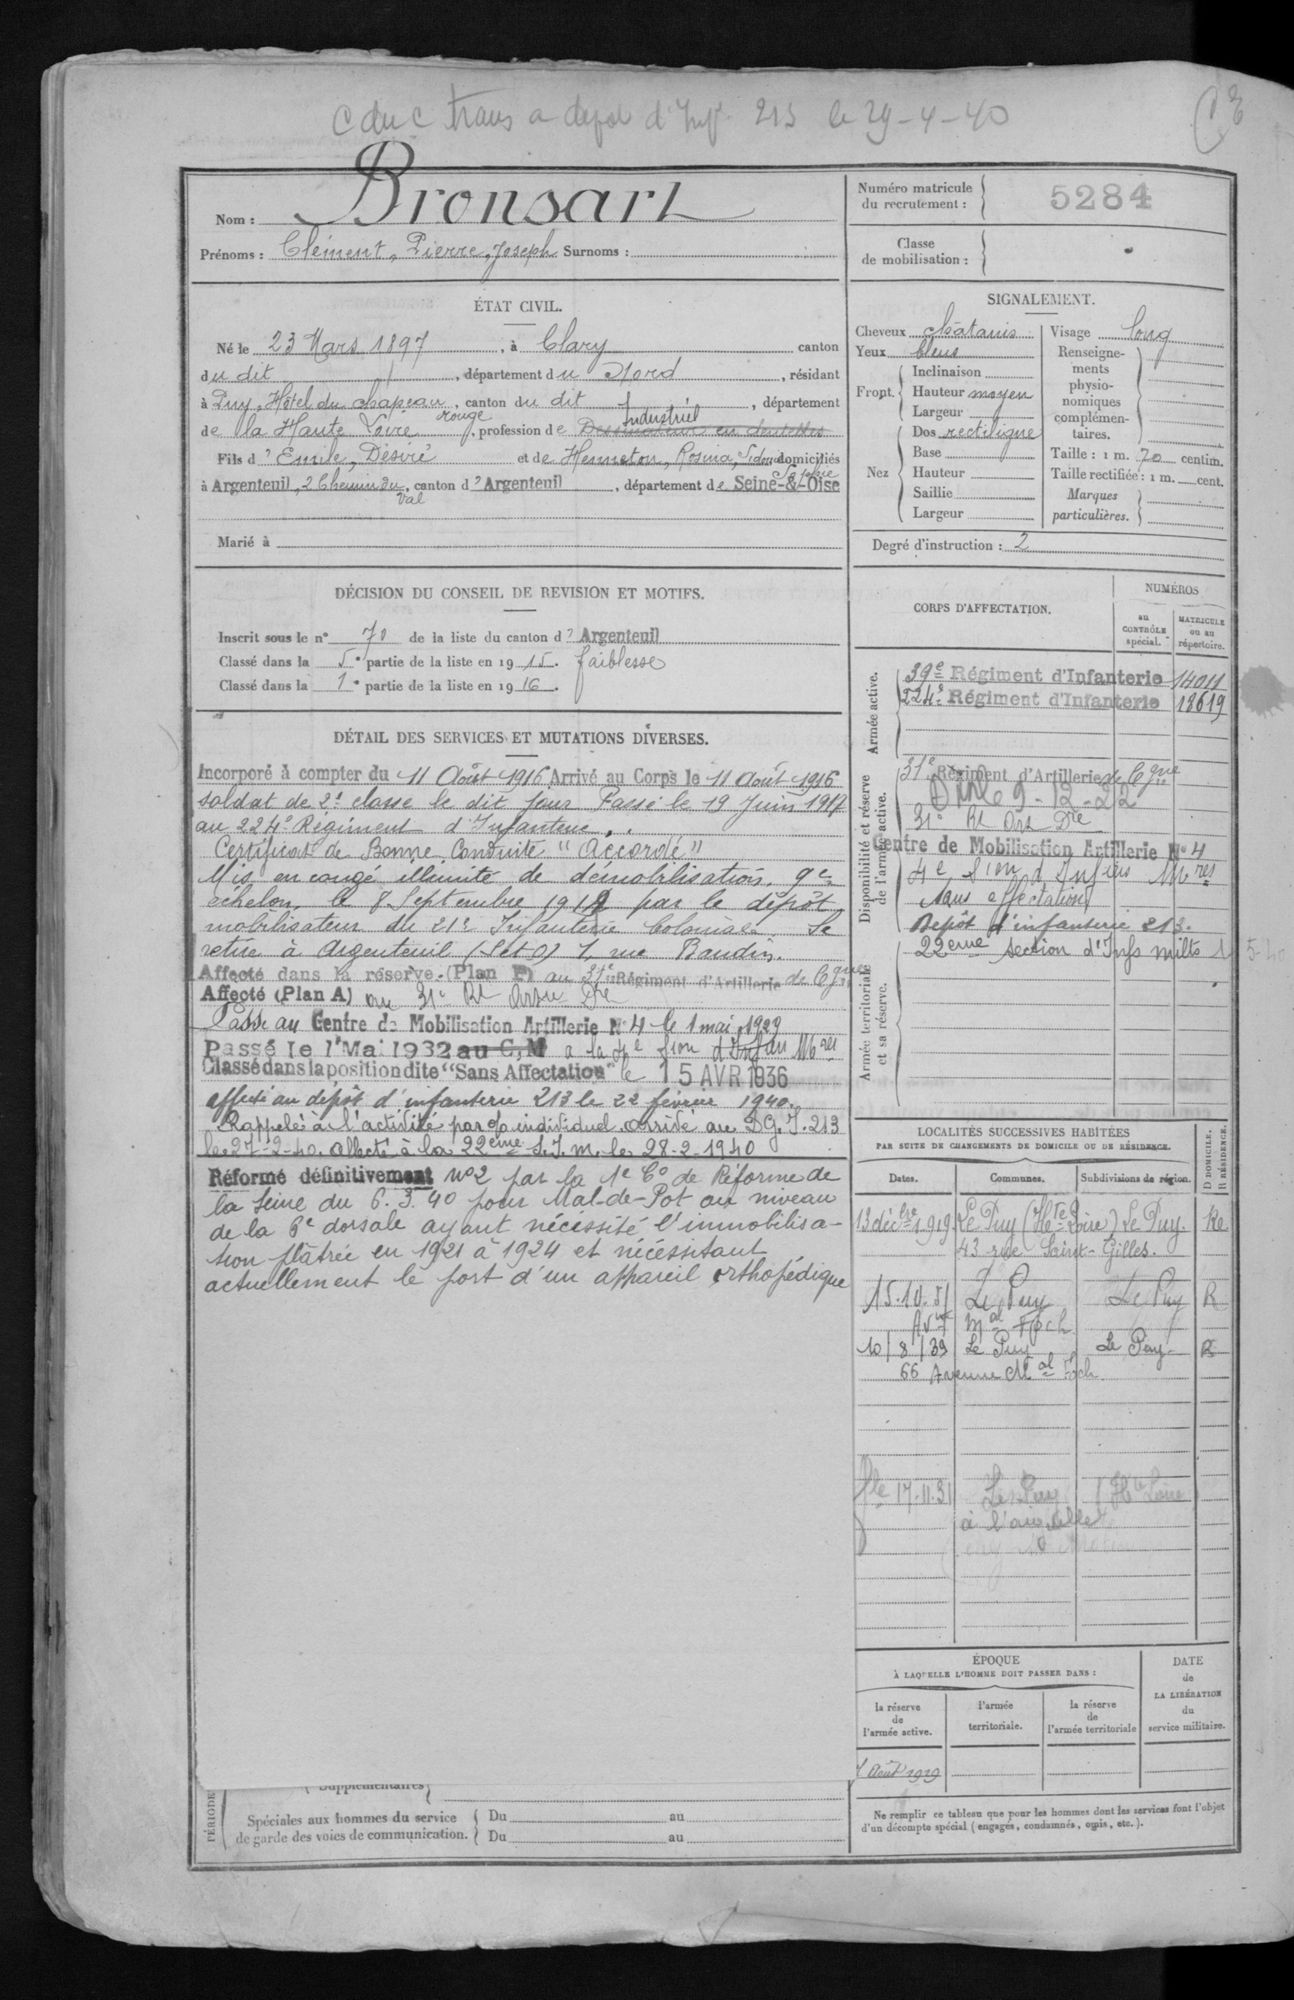 trans a depot d'Inf. 213 le 29-4-40
Nom : Bronsart
Prénoms : Clément, Pierre, Joseph Surnoms :
ÉTAT CIVIL.
Né le 23 Mars 1897, à Clary canton
du dit, département du Nord, résidant
à Puy, Hôtel du chapeau rouge, canton du dit, département
de la Haute Loire, profession de Dessinateur en dentelles Industriel
Fils d'Emile, Désiré et de Henneton, Rosina, Sophie domiciliés
à Argenteuil, 2 Chemin du Val, canton d'Argenteuil, département de Seine-&-Oise
Marié à
DÉCISION DU CONSEIL DE REVISION ET MOTIFS.
Inscrit sous le n° 70 de la liste du canton d'Argenteuil
Classé dans la 5e partie de la liste en 1915. faiblesse
Classé dans la 1e partie de la liste en 1916.
DÉTAIL DES SERVICES ET MUTATIONS DIVERSES.
Incorporé à compter du 11 Août 1916 Arrivé au Corps le 11 Août 1916
soldat de 2e classe le dit jour Passé le 19 Juin 1917
au 224e Régiment d'Infanterie.
Certificat de Bonne Conduite "Accordé"
Mis en congé illimité de démobilisation, 9e
échelon, le 7 Septembre 1919 par le dépôt
mobilisateur du 21e Infanterie Coloniale. Se
retire à Argenteuil (S et O) 7, rue Baudin.
Affecté dans la réserve. (Plan P) au 31e Régiment d'Artillerie de Cgne
Affecté (Plan A) au 31e Rt Artie Dre
Passé au Centre de Mobilisation Artillerie N°4 le 1 mai 1929
Passé le 1er Mai 1932 au C.M a la 4e Sion d'Infirs Mres
Classé dans la position dite "Sans Affectation" le 15 AVR 1936
affecté au dépôt d'infanterie 213 le 22 février 1940.
Rappelé à l'activité par o/o individuel arrivé au DG.I. 213
le 27-2-40. affecté à la 22eme S.I.M. le 28-2-1940
Réformé définitivement N°2 par la 1e Con de Réforme de
la Seine du 6.3.40 pour Mal-de-Pot au niveau
de la 6e dorsale ayant nécessité l'immobilisa-
tion plâtrée en 1921 à 1924 et nécessitant
actuellement le port d'un appareil orthopédique
PÉRIODE
Supplémentaires
Spéciales aux hommes du service de garde des voies de communication.
Du au
Du au
Numéro matricule du recrutement : 5284
Classe de mobilisation :
SIGNALEMENT.
Cheveux châtains
Yeux bleus
Front. Inclinaison
Hauteur moyen
Largeur
Nez Dos rectiligne
Base
Hauteur
Saillie
Largeur
Visage long
Renseignements physionomiques complémentaires.
Taille : 1 m. 70 centim.
Taille rectifiée : 1 m. cent.
Marques particulières.
Degré d'instruction : 2
CORPS D'AFFECTATION.
NUMÉROS
au CONTRÔLE spécial.
MATRICULE ou au répertoire.
Armée active.
39e Régiment d'Infanterie 14011
224e Régiment d'Infanterie 18619
Disponibilité et réserve de l'armée active.
31e Régiment d'Artillerie de Cgne
9-12-22
31e Rt Art Dre
Centre de Mobilisation Artillerie N°4
4e Sion d'Infirs Mres
Sans affectation
Dépôt d'infanterie 213.
Armée territoriale et sa réserve.
22eme section d'Infs milts
5-40
LOCALITÉS SUCCESSIVES HABITÉES
PAR SUITE DE CHANGEMENTS DE DOMICILE OU DE RÉSIDENCE.
Dates. Communes. Subdivisions de région. D DOMICILE. R RÉSIDENCE.
13 décbre 1919. Le Puy (Hte Loire) Le Puy. Re
43 rue Saint-Gilles.
15.10.31 Le Puy Le Puy R
Avue Mal Foch
10/8/39 Le Puy Le Puy R
66 Avenue Mal Foch.
17.11.31 Le Puy Hte Loire
ÉPOQUE
À LAQUELLE L'HOMME DOIT PASSER DANS :
la réserve de l'armée active.
l'armée territoriale.
la réserve de l'armée territoriale
DATE de LA LIBÉRATION du service militaire.
Août 1919
Ne remplir ce tableau que pour les hommes dont les services font l'objet
d'un décompte spécial (engagés, condamnés, omis, etc.).